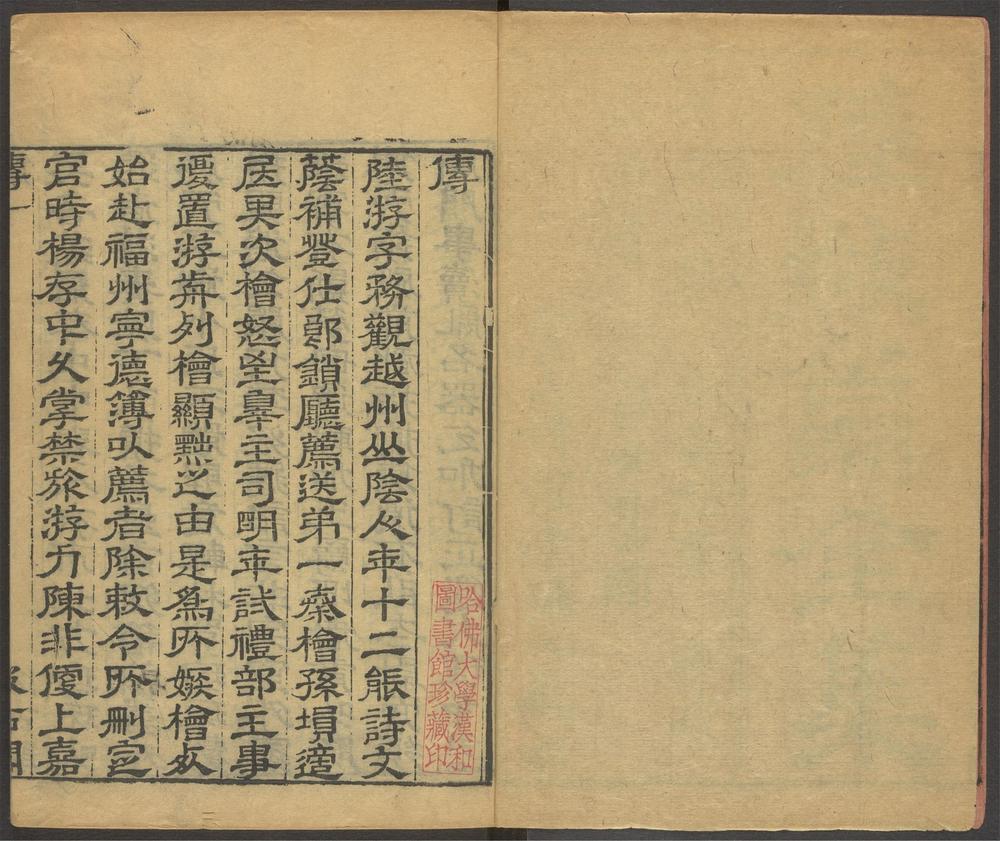 傳
陸游字務觀越州山陰人年十二能詩文
蔭補登仕郎鎖廳薦送弟一秦檜孫塤適
居其次檜怒至辠主司明年試禮部主事
復置游歬列檜顯黜之由是為所嫉檜死
始赴福州寧德簿以薦者除敕令所刪定
官時楊存中久掌禁旅游力陳非便上嘉
傳一
汲古閣
哈佛大學漢和
圖書館珍藏印